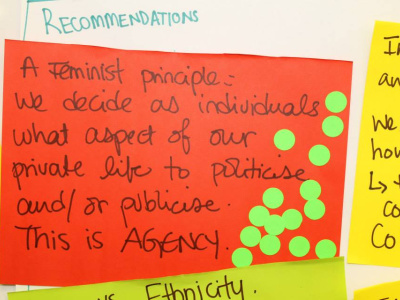 RECOMMENDATIONS
A Feminist principle:-
We decide as individuals
what aspect of our
private life to politicise
and/or publicise.
This is AGENCY.
Ethnicity.
we
how